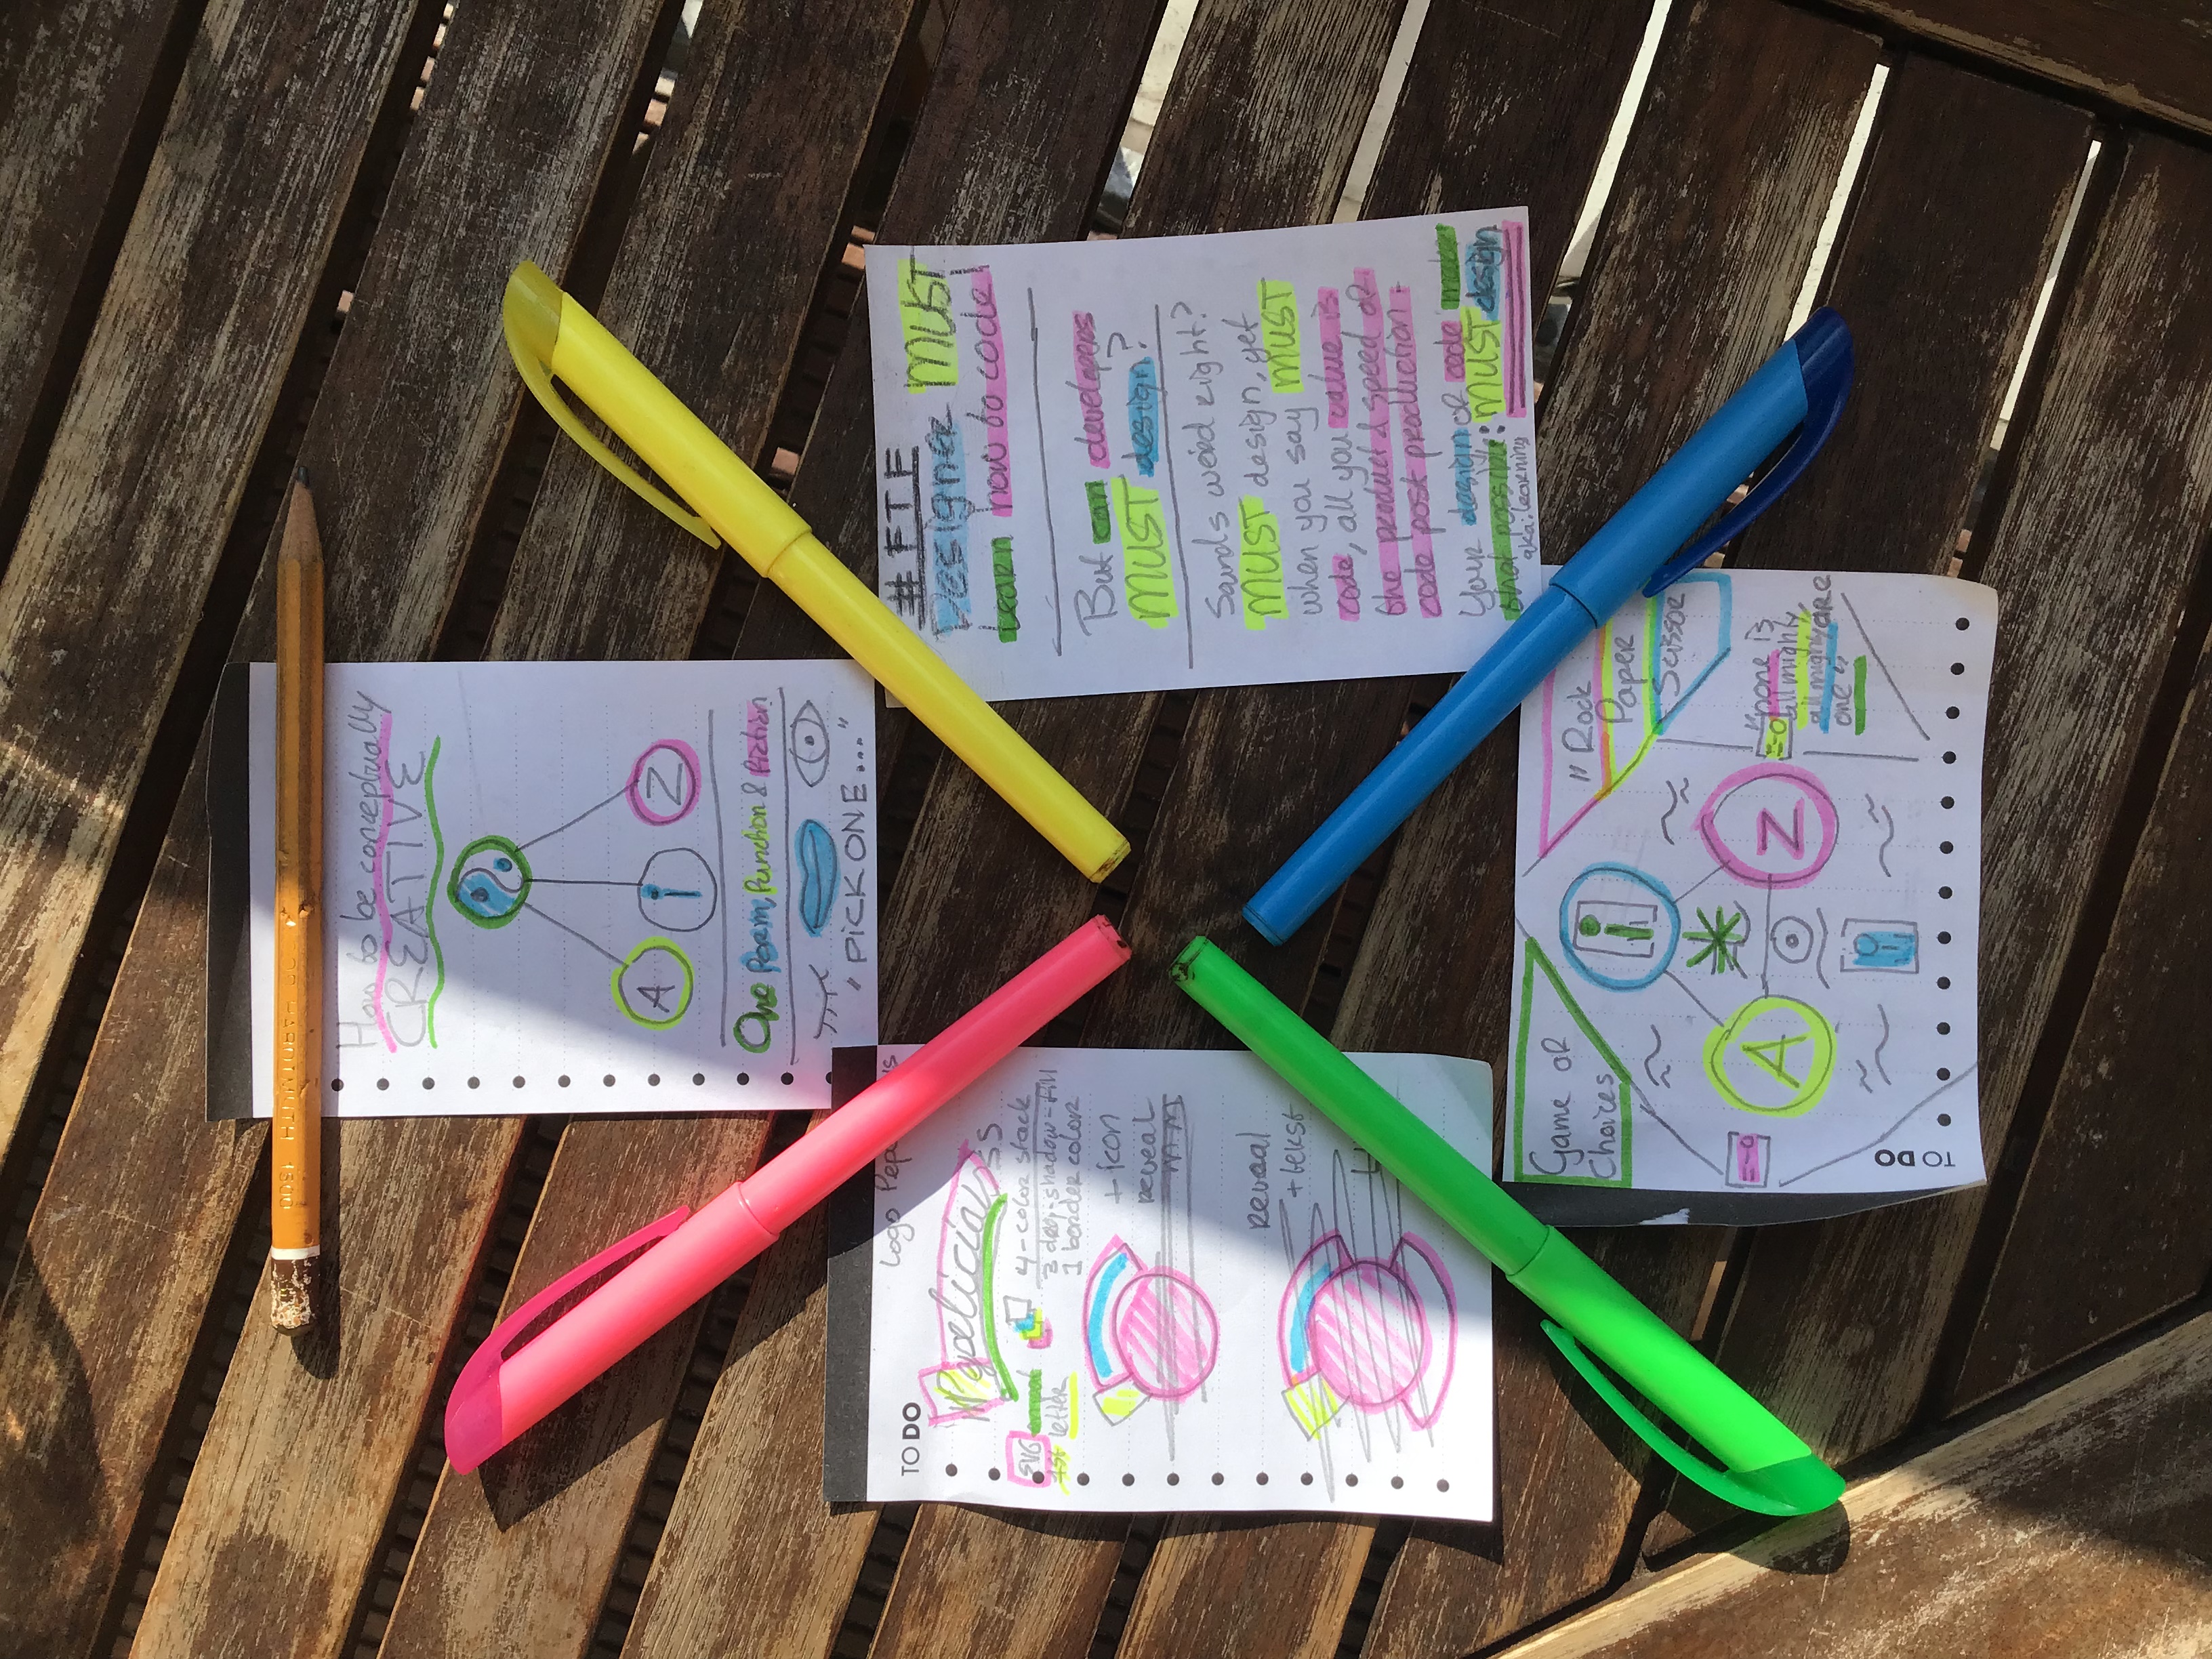 HARDTMUTH 1500
How to be conceptually
CREATIVE
A i Z
One Form, Function & Fiction
"PICK ONE..."
Logo
TO DO
SVG
4-color stack
1st letter
3 drop-shadow-fill
1 border color
+ icon
reveal
reveal
+ tekst
#FTF
Designer MUST
learn how to code!
But can developers
MUST design?
Sounds weird right?
MUST design, yet
when you say MUST
code, all you value is
the product & speed of
code post production.
Your design or code makes
that possible: MUST design
aka: learning
Game of
Choices
"Rock
Paper
Scissor
i
A
Z
"none is
all mighty,
all mighty are
one"
TO DO